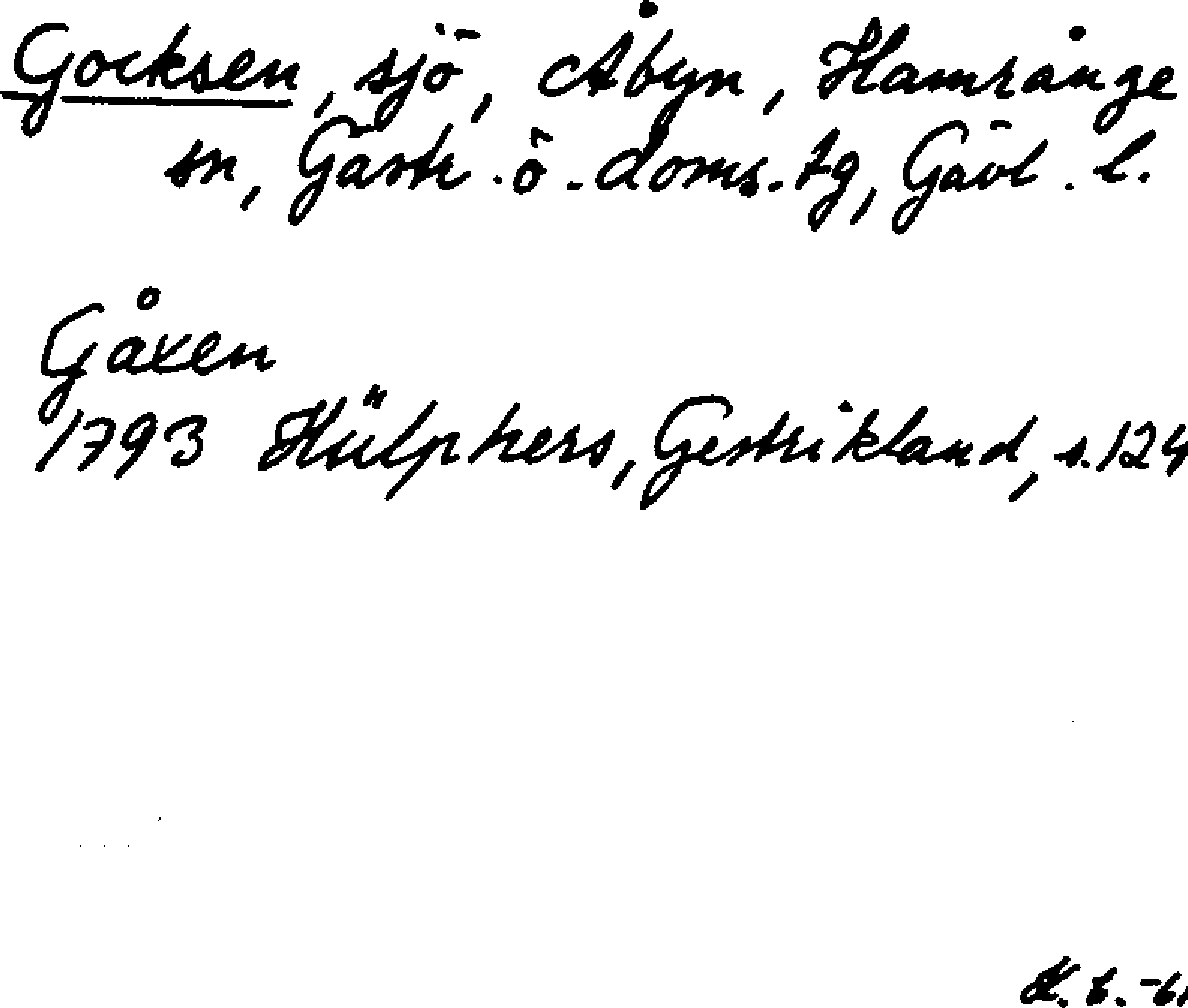 Gocksen, sjö, Åbyn, Hamrånge
sn, Gästr. ö. doms. tg, Gävl. l.
Gåxen
1793 Hülphers, Gestrikland, s. 124